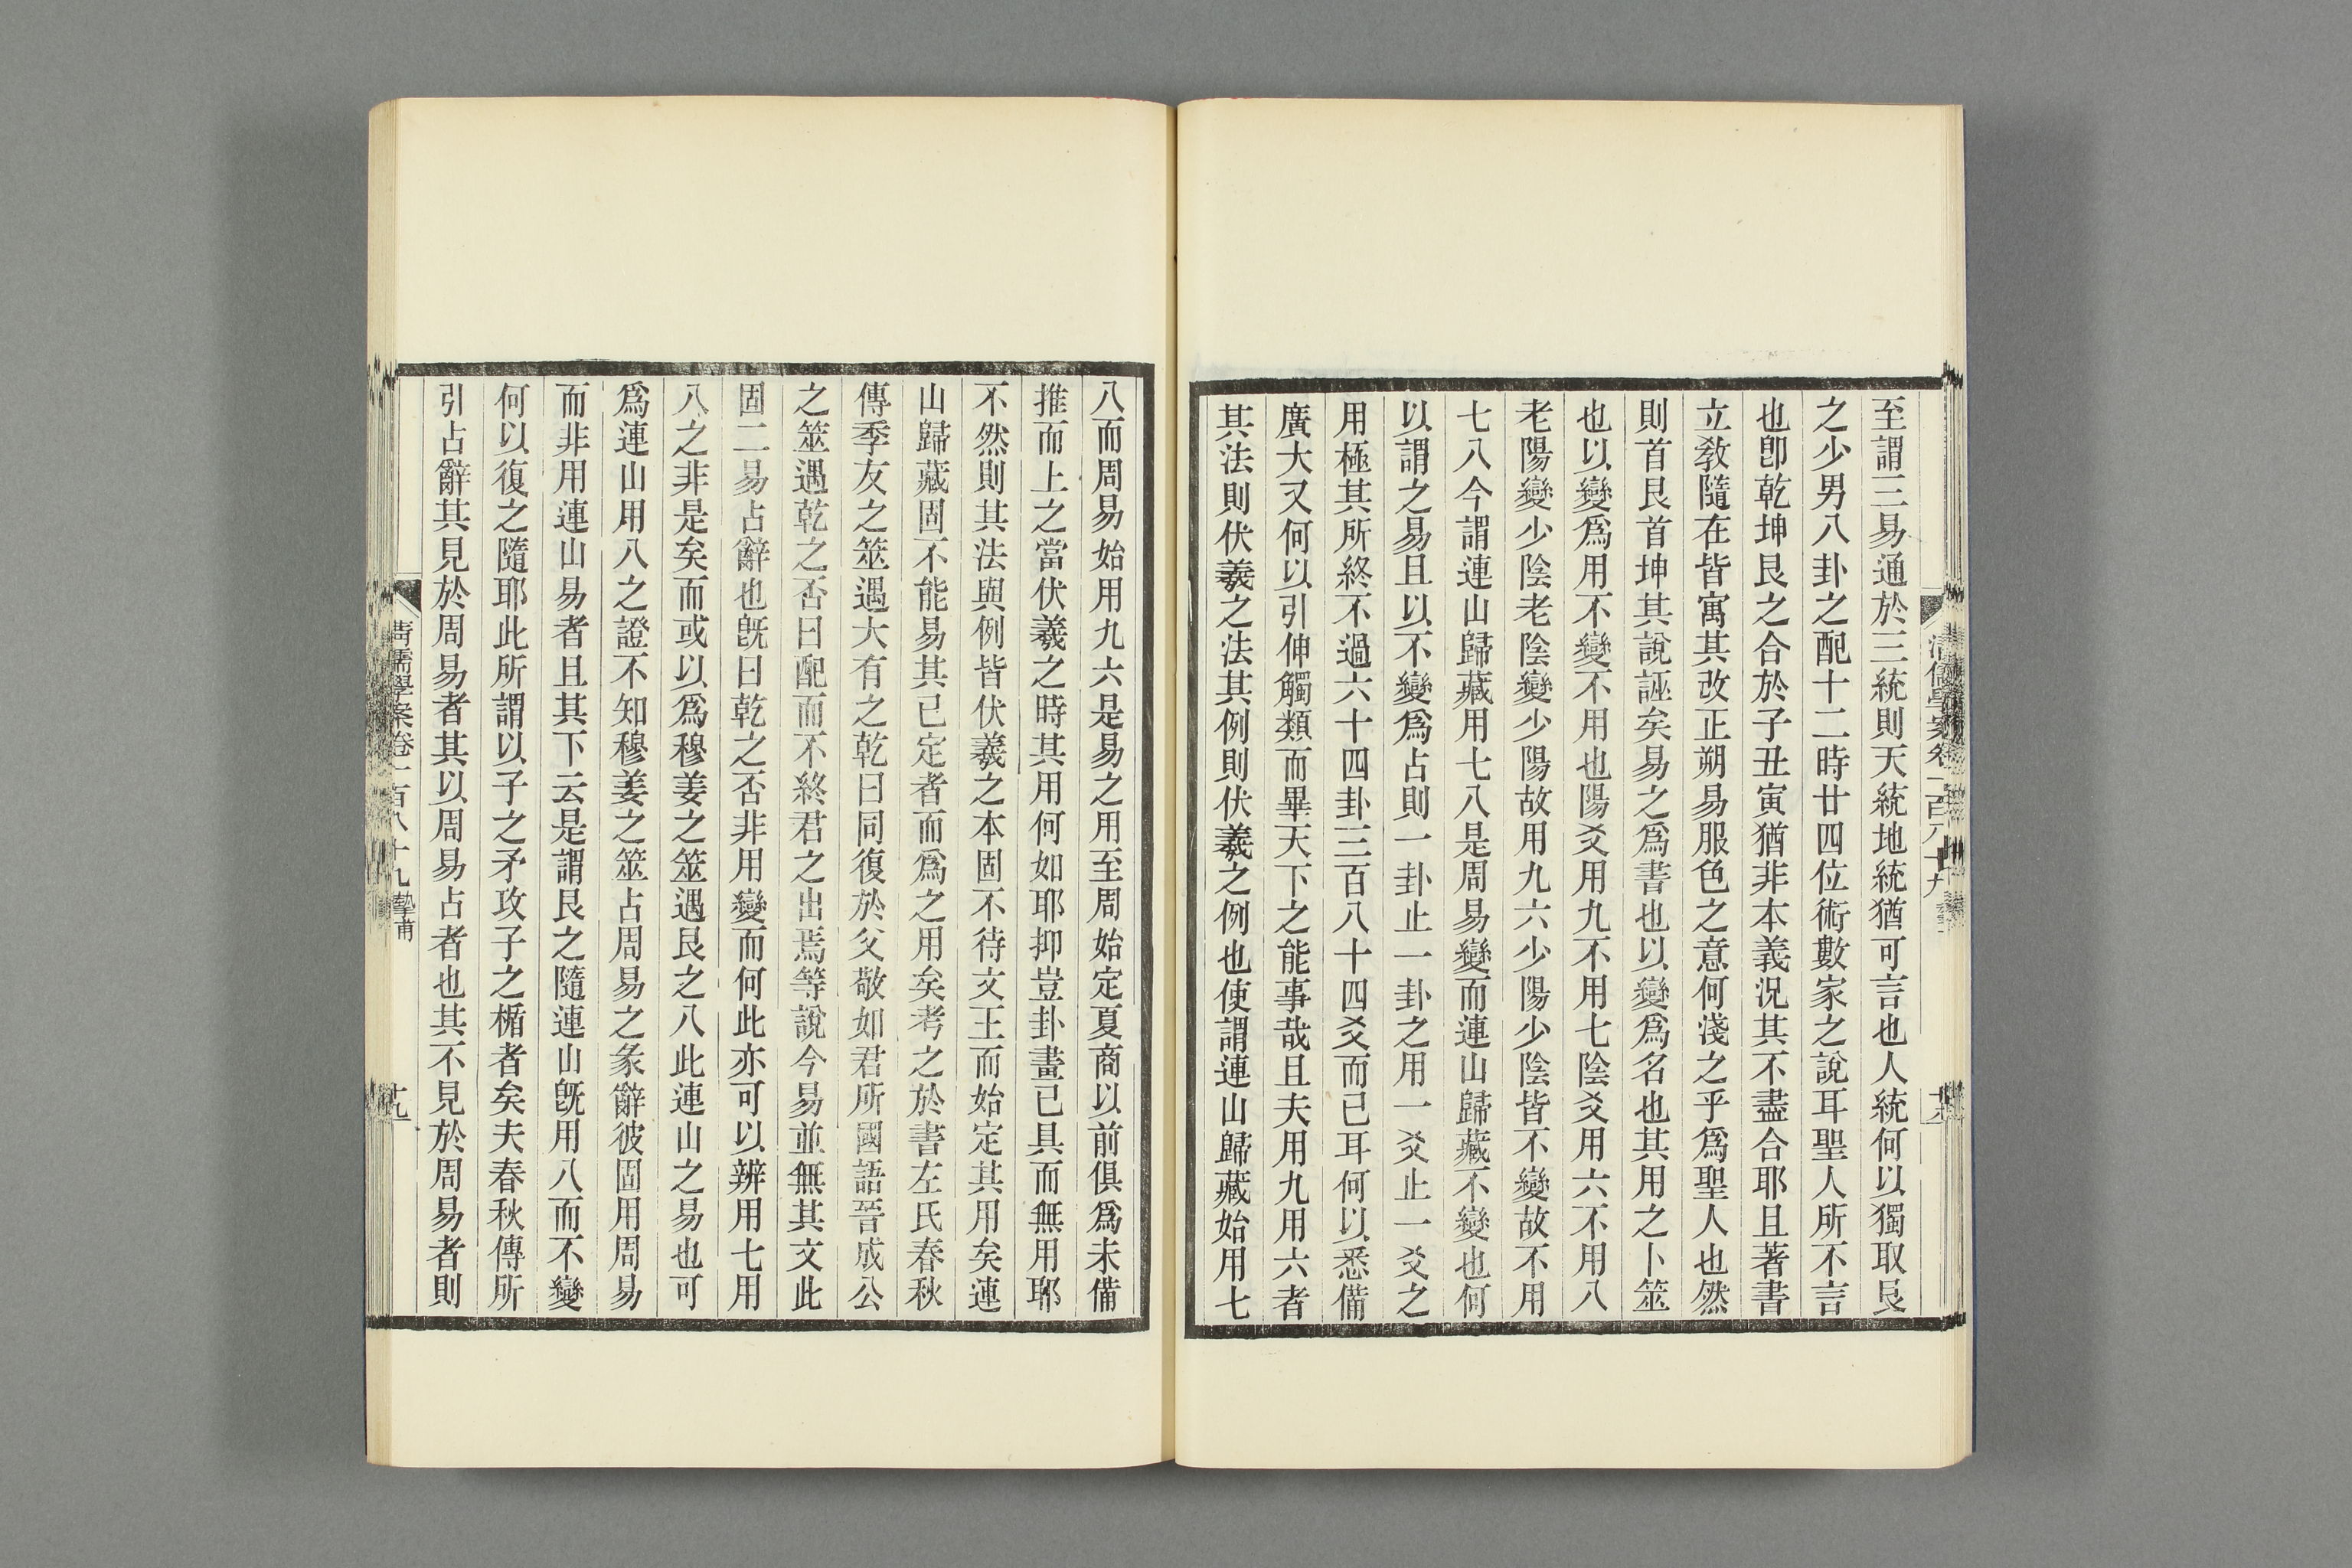 至謂三易通於三統則天統地統猶可言也人統何以獨取艮
之少男八卦之配十二時廿四位術數家之說耳聖人所不言
也卽乾坤艮之合於子丑寅猶非本義況其不盡合耶且著書
立敎隨在皆寓其改正朔易服色之意何淺之乎爲聖人也然
則首艮首坤其說誣矣易之爲書也以變爲名也其用之卜筮
也以變爲用不變不用也陽爻用九不用七陰爻用六不用八
老陽變少陰老陰變少陽故用九六少陽少陰皆不變故不用
七八今謂連山歸藏用七八是周易變而連山歸藏不變也何
以謂之易且以不變爲占則一卦止一卦之用一爻止一爻之
用極其所終不過六十四卦三百八十四爻而已耳何以悉備
廣大又何以引伸觸類而畢天下之能事哉且夫用九用六者
其法則伏羲之法其例則伏羲之例也使謂連山歸藏始用七
八而周易始用九六是易之用至周始定夏商以前俱爲未備
推而上之當伏羲之時其用何如耶抑豈卦畫已具而無用耶
不然則其法與例皆伏羲之本固不待文王而始定其用矣連
山歸藏固不能易其已定者而爲之用矣考之於書左氏春秋
傳季友之筮遇大有之乾曰同復於父敬如君所國語晉成公
之筮遇乾之否曰配而不終君之出焉等說今易並無其文此
固二易占辭也旣曰乾之否非用變而何此亦可以辨用七用
八之非是矣而或以爲穆姜之筮遇艮之八此連山之易也可
爲連山用八之證不知穆姜之筮占周易之彖辭彼固用周易
而非用連山易者且其下云是謂艮之隨連山旣用八而不變
何以復之隨耶此所謂以子之矛攻子之楯者矣夫春秋傳所
引占辭其見於周易者其以周易占者也其不見於周易者則
清儒學案卷一百八十九 摯甫
十九